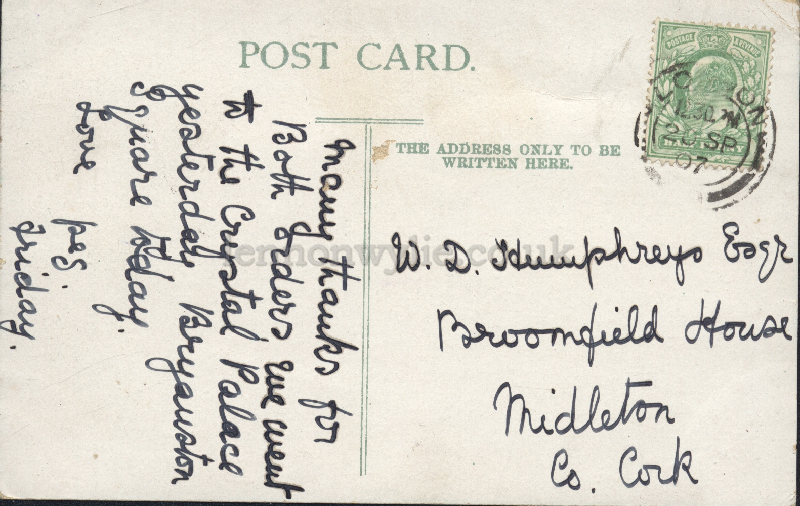 POST CARD.
THE ADDRESS ONLY TO BE
WRITTEN HERE.
POSTAGE
LONDON
20 SP
07
Many thanks for
Both orders we went
to the Crystal Palace
yesterday Bryanston
Square today.
Love Peg.
Friday.
W. D. Humphreys Esqr
Broomfield House
Midleton
Co. Cork
lennonwylie.co.uk